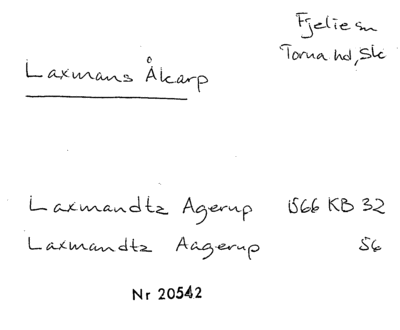 Fjelie sn
Torna hd, Sk
Laxmans Åkarp
Laxmandtz Agerup 1566 KB 32
Laxmandtz Aagerup 56
Nr 20542